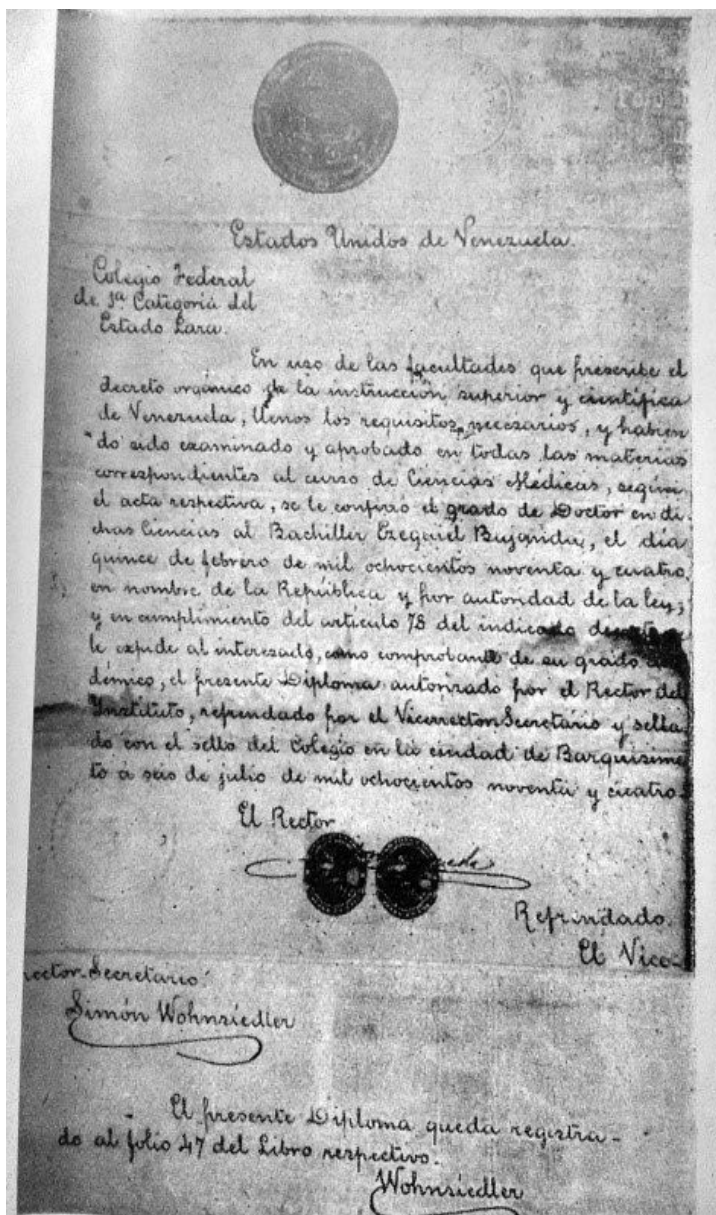 Estados Unidos de Venezuela.
Colegio Federal
de 1ª Categoría del
Estado Lara.
En uso de las facultades que prescribe el
decreto orgánico de la instrucción superior y científica
de Venezuela, llenos los requisitos necesarios, y habien
do sido examinado y aprobado en todas las materias
correspondientes al curso de Ciencias Médicas, según
el acta respectiva, se le confirió el grado de Doctor en di
chas Ciencias al Bachiller Ezequiel Bujanda, el día
quince de febrero de mil ochocientos noventa y cuatro,
en nombre de la República y por autoridad de la ley;
y en cumplimiento del artículo 78 del indicado decreto
le expide al interesado, como comprobante de su grado
démico, el presente Diploma autorizado por el Rector del
Instituto, refrendado por el Vicerrector Secretario y sella
do con el sello del Colegio en la ciudad de Barquisime
to á seis de julio de mil ochocientos noventa y cuatro.
El Rector
Refrendado.
El Vice-
rector-Secretario.
Simón Wohnsiedler
El presente Diploma queda registra-
do al folio 47 del Libro respectivo.
Wohnsiedler